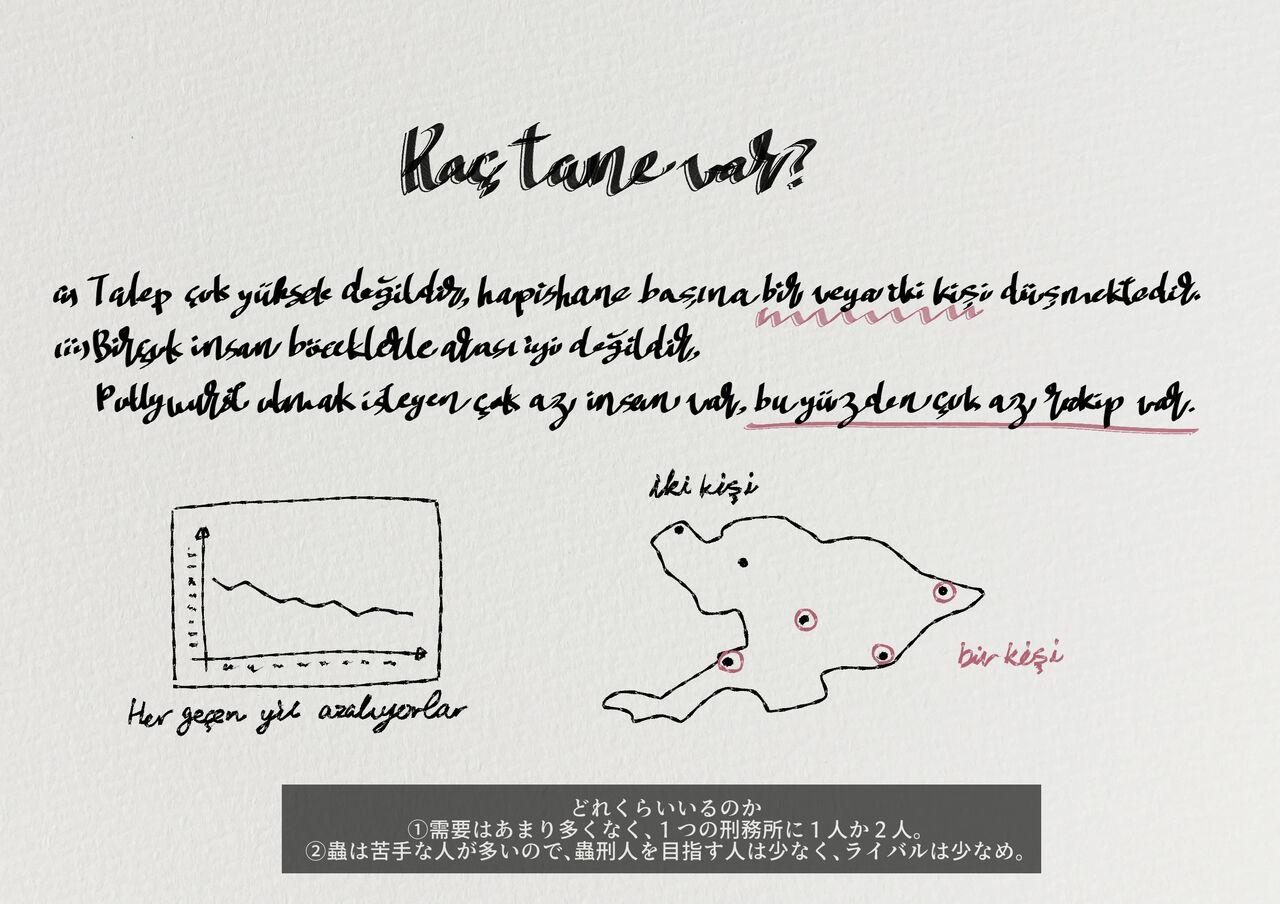 Kaç tane var?
(i) Talep çok yüksek değildir, hapishane başına bir veya iki kişi düşmektedir.
(ii) Birçok insan böceklerle arası iyi değildir,
olmak isteyen çok az insan var, bu yüzden çok az rakip var.
iki kişi
bir kişi
Her geçen yıl azalıyorlar
どれくらいいるのか
①需要はあまり多くなく、1つの刑務所に1人か2人。
②蟲は苦手な人が多いので、蟲刑人を目指す人は少なく、ライバルは少なめ。